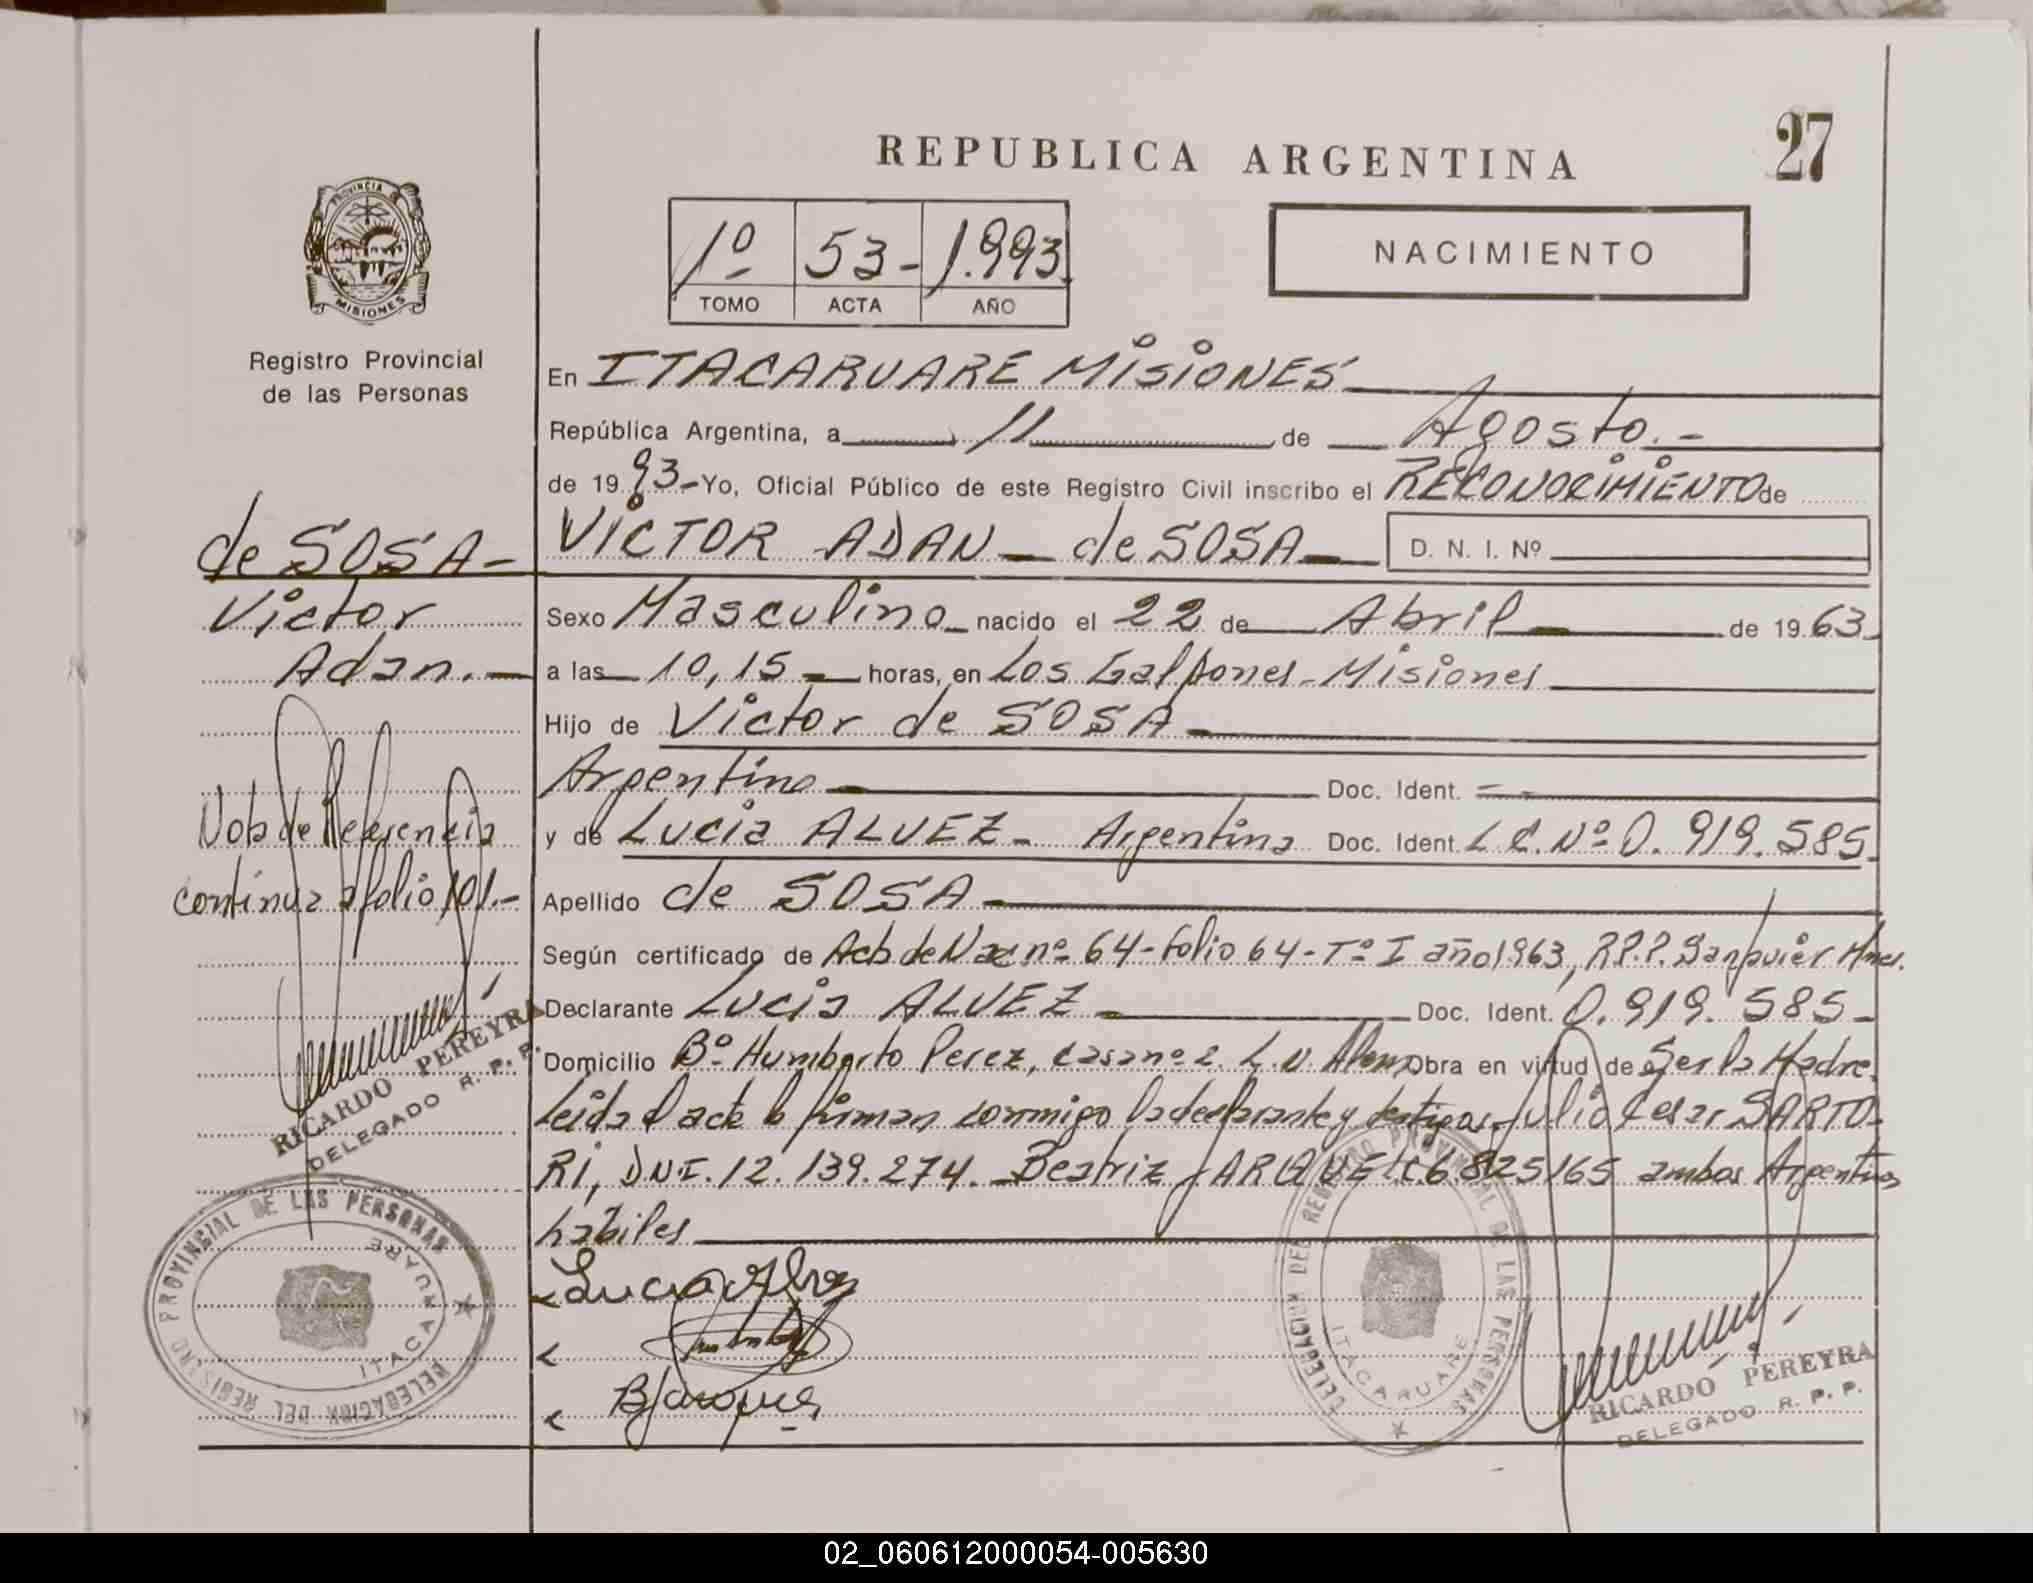 REPUBLICA ARGENTINA
27
PROVINCIA
MISIONES
1º 53- 1.993.
TOMO ACTA AÑO
NACIMIENTO
Registro Provincial
de las Personas
En ITACARUARE MISIONES
República Argentina, a 11 de Agosto.-
de 19 93- Yo, Oficial Público de este Registro Civil inscribo el RECONOCIMIENTO de
VICTOR ADAN - de SOSA - D. N. I. Nº
Sexo Masculino nacido el 22 de Abril de 19 63
a las 10,15 horas, en Los Galpones - Misiones
Hijo de Victor de SOSA
Argentino Doc. Ident. = -
y de Lucia ALVEZ - Argentina Doc. Ident. L.C. Nº 0.919.585
Apellido de SOSA
Según certificado de Acta de Nac nº 64 - folio 64 - Tº I año 1963, R.P.P. San Javier Mnes.
Declarante Lucia ALVEZ Doc. Ident. 0.919.585
Domicilio Bº Humberto Perez, casa nº 2. L.N. Alem Obra en virtud de Ser la Madre.
Leida el acta la firman conmigo la declarante y testigos Julio Cesar SARTO-
RI, DNI. 12.139.274. Beatriz JARQUE LC. 6.825165 ambos Argentinos
habiles
Lucia Alvez
BJarque
de SOSA -
Victor
Adan. -
Nota de Referencia
continua a folio 101.-
RICARDO PEREYRA
DELEGADO R. P. P.
DELEGACION DEL REGISTRO PROVINCIAL DE LAS PERSONAS
ITACARUARE
DELEGACION DEL REGISTRO PROVINCIAL DE LAS PERSONAS
ITACARUARE
RICARDO PEREYRA
DELEGADO R. P. P.
02_060612000054-005630